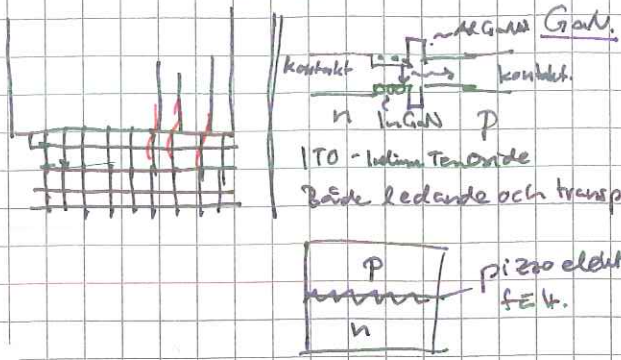 AlGaN GaN.
kontakt kontakt.
n InGaN P
ITO - Indium Tenoxide
Både ledande och transp
P
pizzo elekt
fält.
n